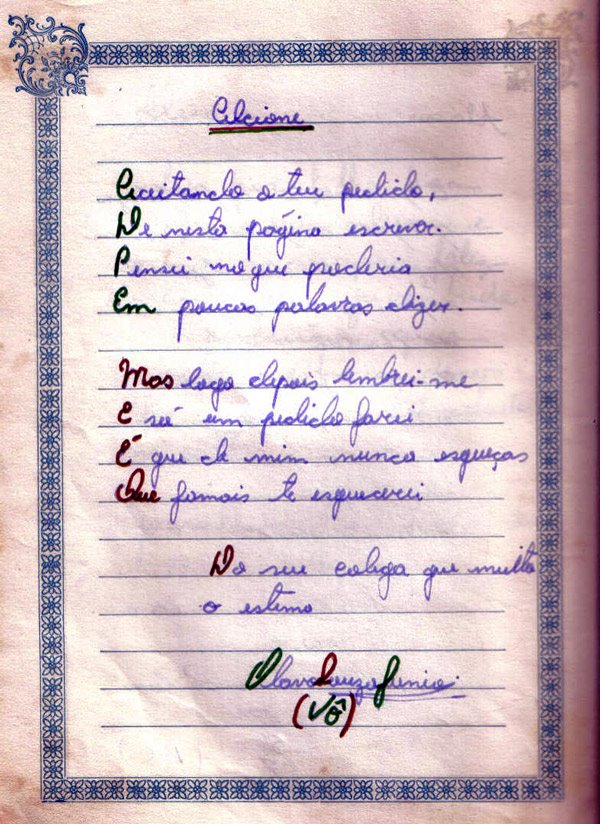 Celcione
Aceitando o teu pedido,
De nesta página escrever.
Pensei no que poderia
Em poucas palavras dizer.
Mas logo depois lembrei-me
E só um pedido farei
É que de mim nunca esqueças
Que jamais te esquecerei
Do seu colega que muito
o estima
Olavo Souza Junior.
(Vô)